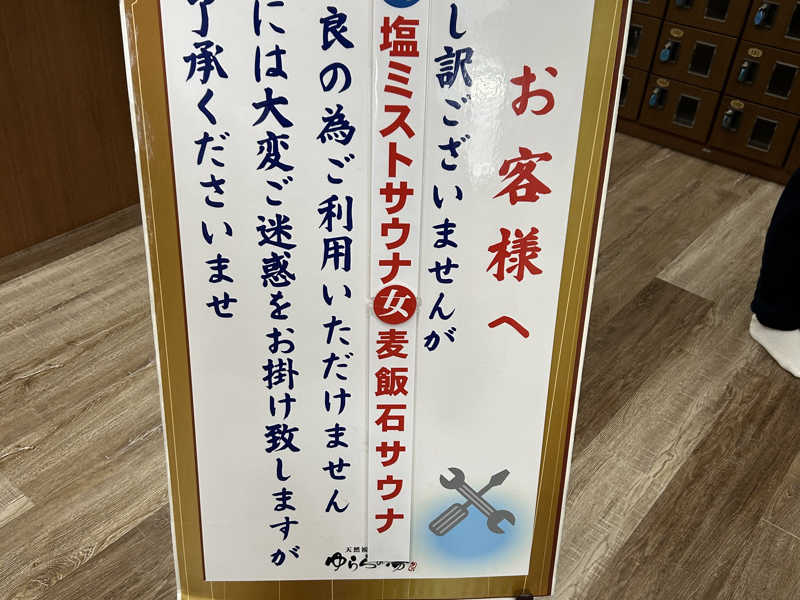 お客様へ
し訳ございませんが
塩ミストサウナ 女 麦飯石サウナ
良の為ご利用いただけません
には大変ご迷惑をお掛け致しますが
了承くださいませ
天然
ゆらら